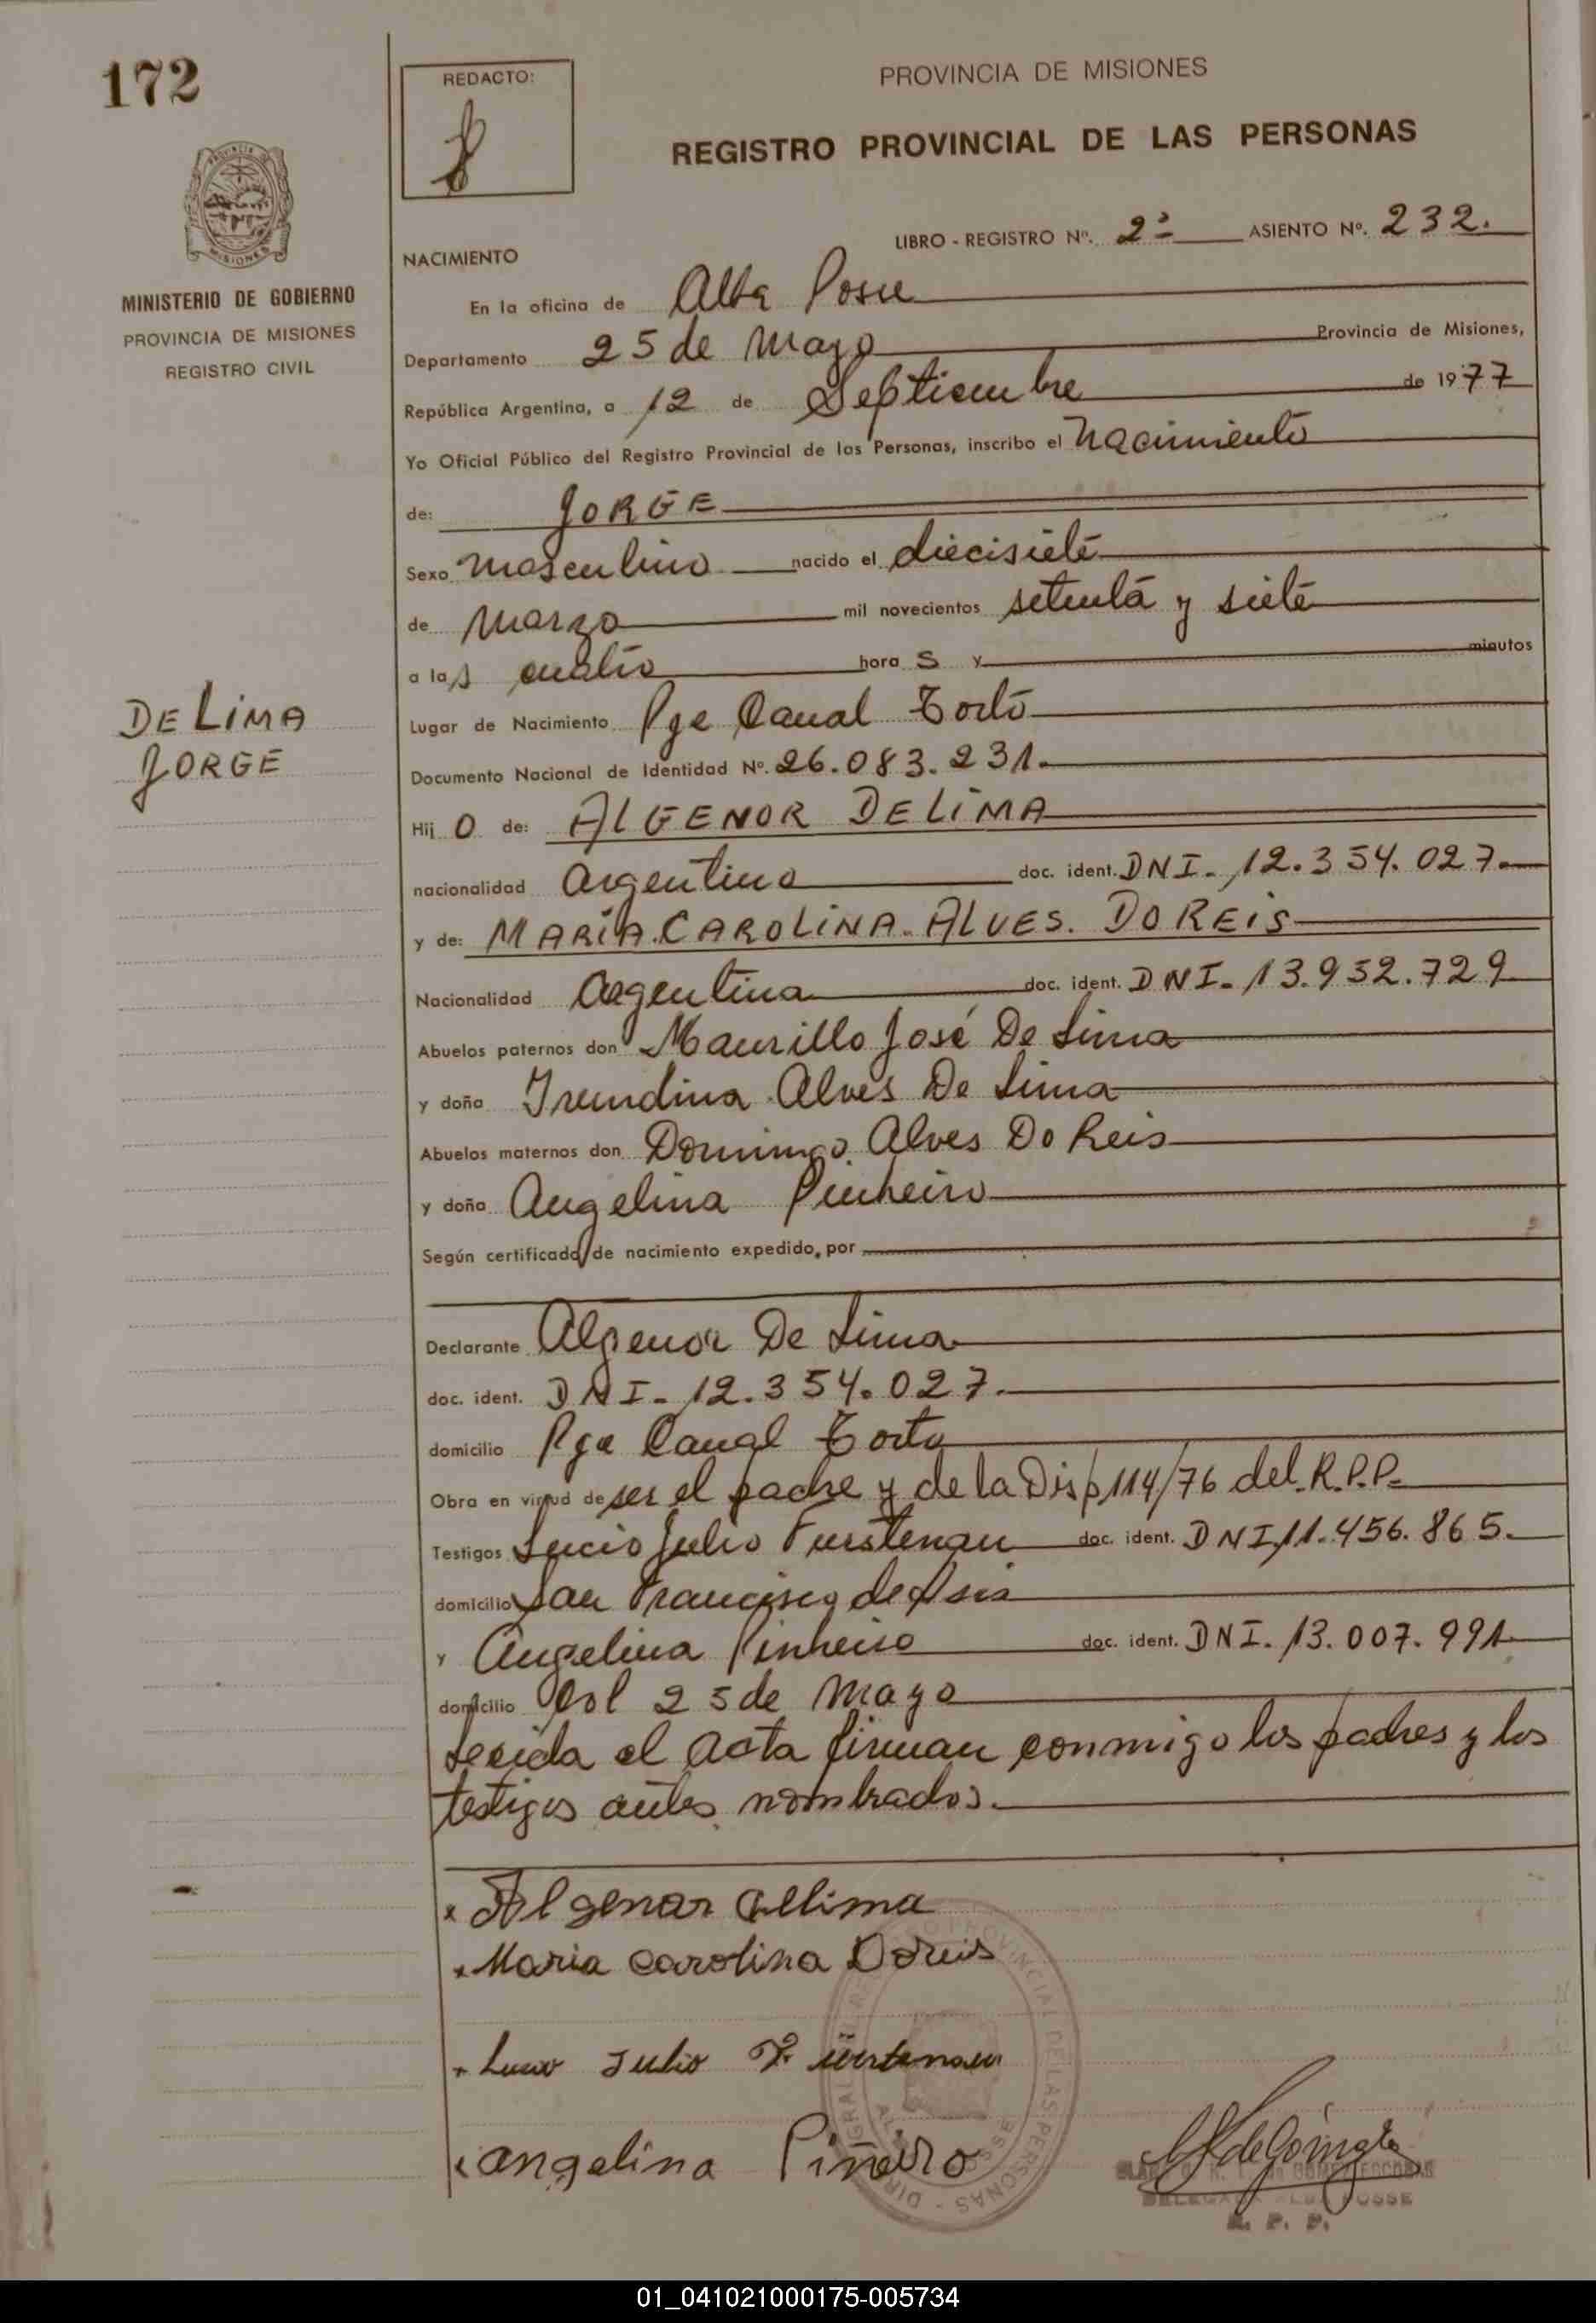 172
REDACTO:
PROVINCIA DE MISIONES
REGISTRO PROVINCIAL DE LAS PERSONAS
LIBRO - REGISTRO Nº. 2º ASIENTO Nº. 232.
NACIMIENTO
MINISTERIO DE GOBIERNO
PROVINCIA DE MISIONES
REGISTRO CIVIL
En la oficina de Alba Posse
Departamento 25 de Mayo Provincia de Misiones,
República Argentina, a 12 de Septiembre de 1977
Yo Oficial Público del Registro Provincial de las Personas, inscribo el Nacimiento
de: JORGE
Sexo masculino nacido el diecisiete
de Marzo mil novecientos setenta y siete
a las cuatro horas y minutos
DE LIMA
JORGE
Lugar de Nacimiento Pje Canal Torto
Documento Nacional de Identidad Nº. 26.083.231.
Hijo de: ALGENOR DE LIMA
nacionalidad Argentina doc. ident. DNI- 12.354.027.
y de: MARÍA CAROLINA ALVES. DO REIS
Nacionalidad Argentina doc. ident. DNI- 13.952.729
Abuelos paternos don Maurillo José De Lima
y doña Irundina Alves De Lima
Abuelos maternos don Domingo Alves Do Reis
y doña Angelina Pinheiro
Según certificado de nacimiento expedido, por
Declarante Algenor De Lima
doc. ident. DNI- 12.354.027.
domicilio Pje Canal Torto
Obra en virtud de ser el padre y de la Disp 114/76 del R.P.P.
Testigos Lucio Julio Furstenau doc. ident. DNI 11.456.865.
domicilio San Francisco de Asis
y Angelina Pinheiro doc. ident. DNI. 13.007.991
domicilio Col 25 de Mayo
Leeida el acta firman conmigo los padres y los
testigos antes nombrados.
x Algenar Dellima
x Maria Carolina Doreis
x Lucio Julio Fürstenau
x angelina Piñeiro
DELEGADA ALBA POSSE
R. P. P.
01_041021000175-005734